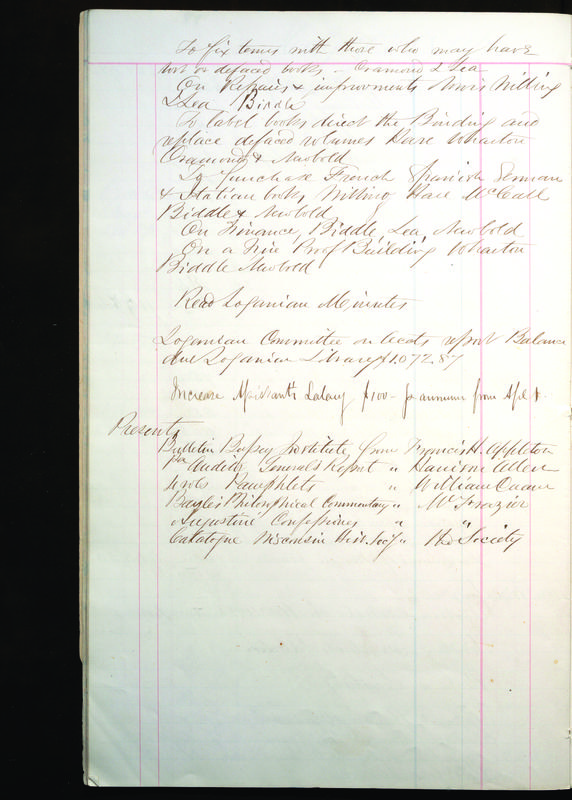 To fix terms with those who may have
lost or defaced books – Cramond & Lea
On Repairs & improvements Willing
& Lea Biddle
To label books direct the Binding and
replace defaced volumes Hare Wharton
Cramond & Newbold
To purchase French Spanish German
& Italian books, Willing Hare McCall
Biddle & Newbold
On Finance, Biddle, Lea, Newbold
On a Fire Proof Building Wharton
Biddle Newbold
Read Loganian Minutes
Loganian Committee on Accts report Balance
due Loganian Library $1.072.87
Increase Assistants Salary $100– pr annum from Apl 1.
Presents
Bulletin Bussey Institute from Francis H. Appleton
Pa Auditor General's Report " Harrison Allen
4 vols Pamphlets " William Duane
Bayle's Philosophical Commentary " Mr Frazier
Augustine Confessions " "
Catalogue Wisconsin Hist. Socy " The Society